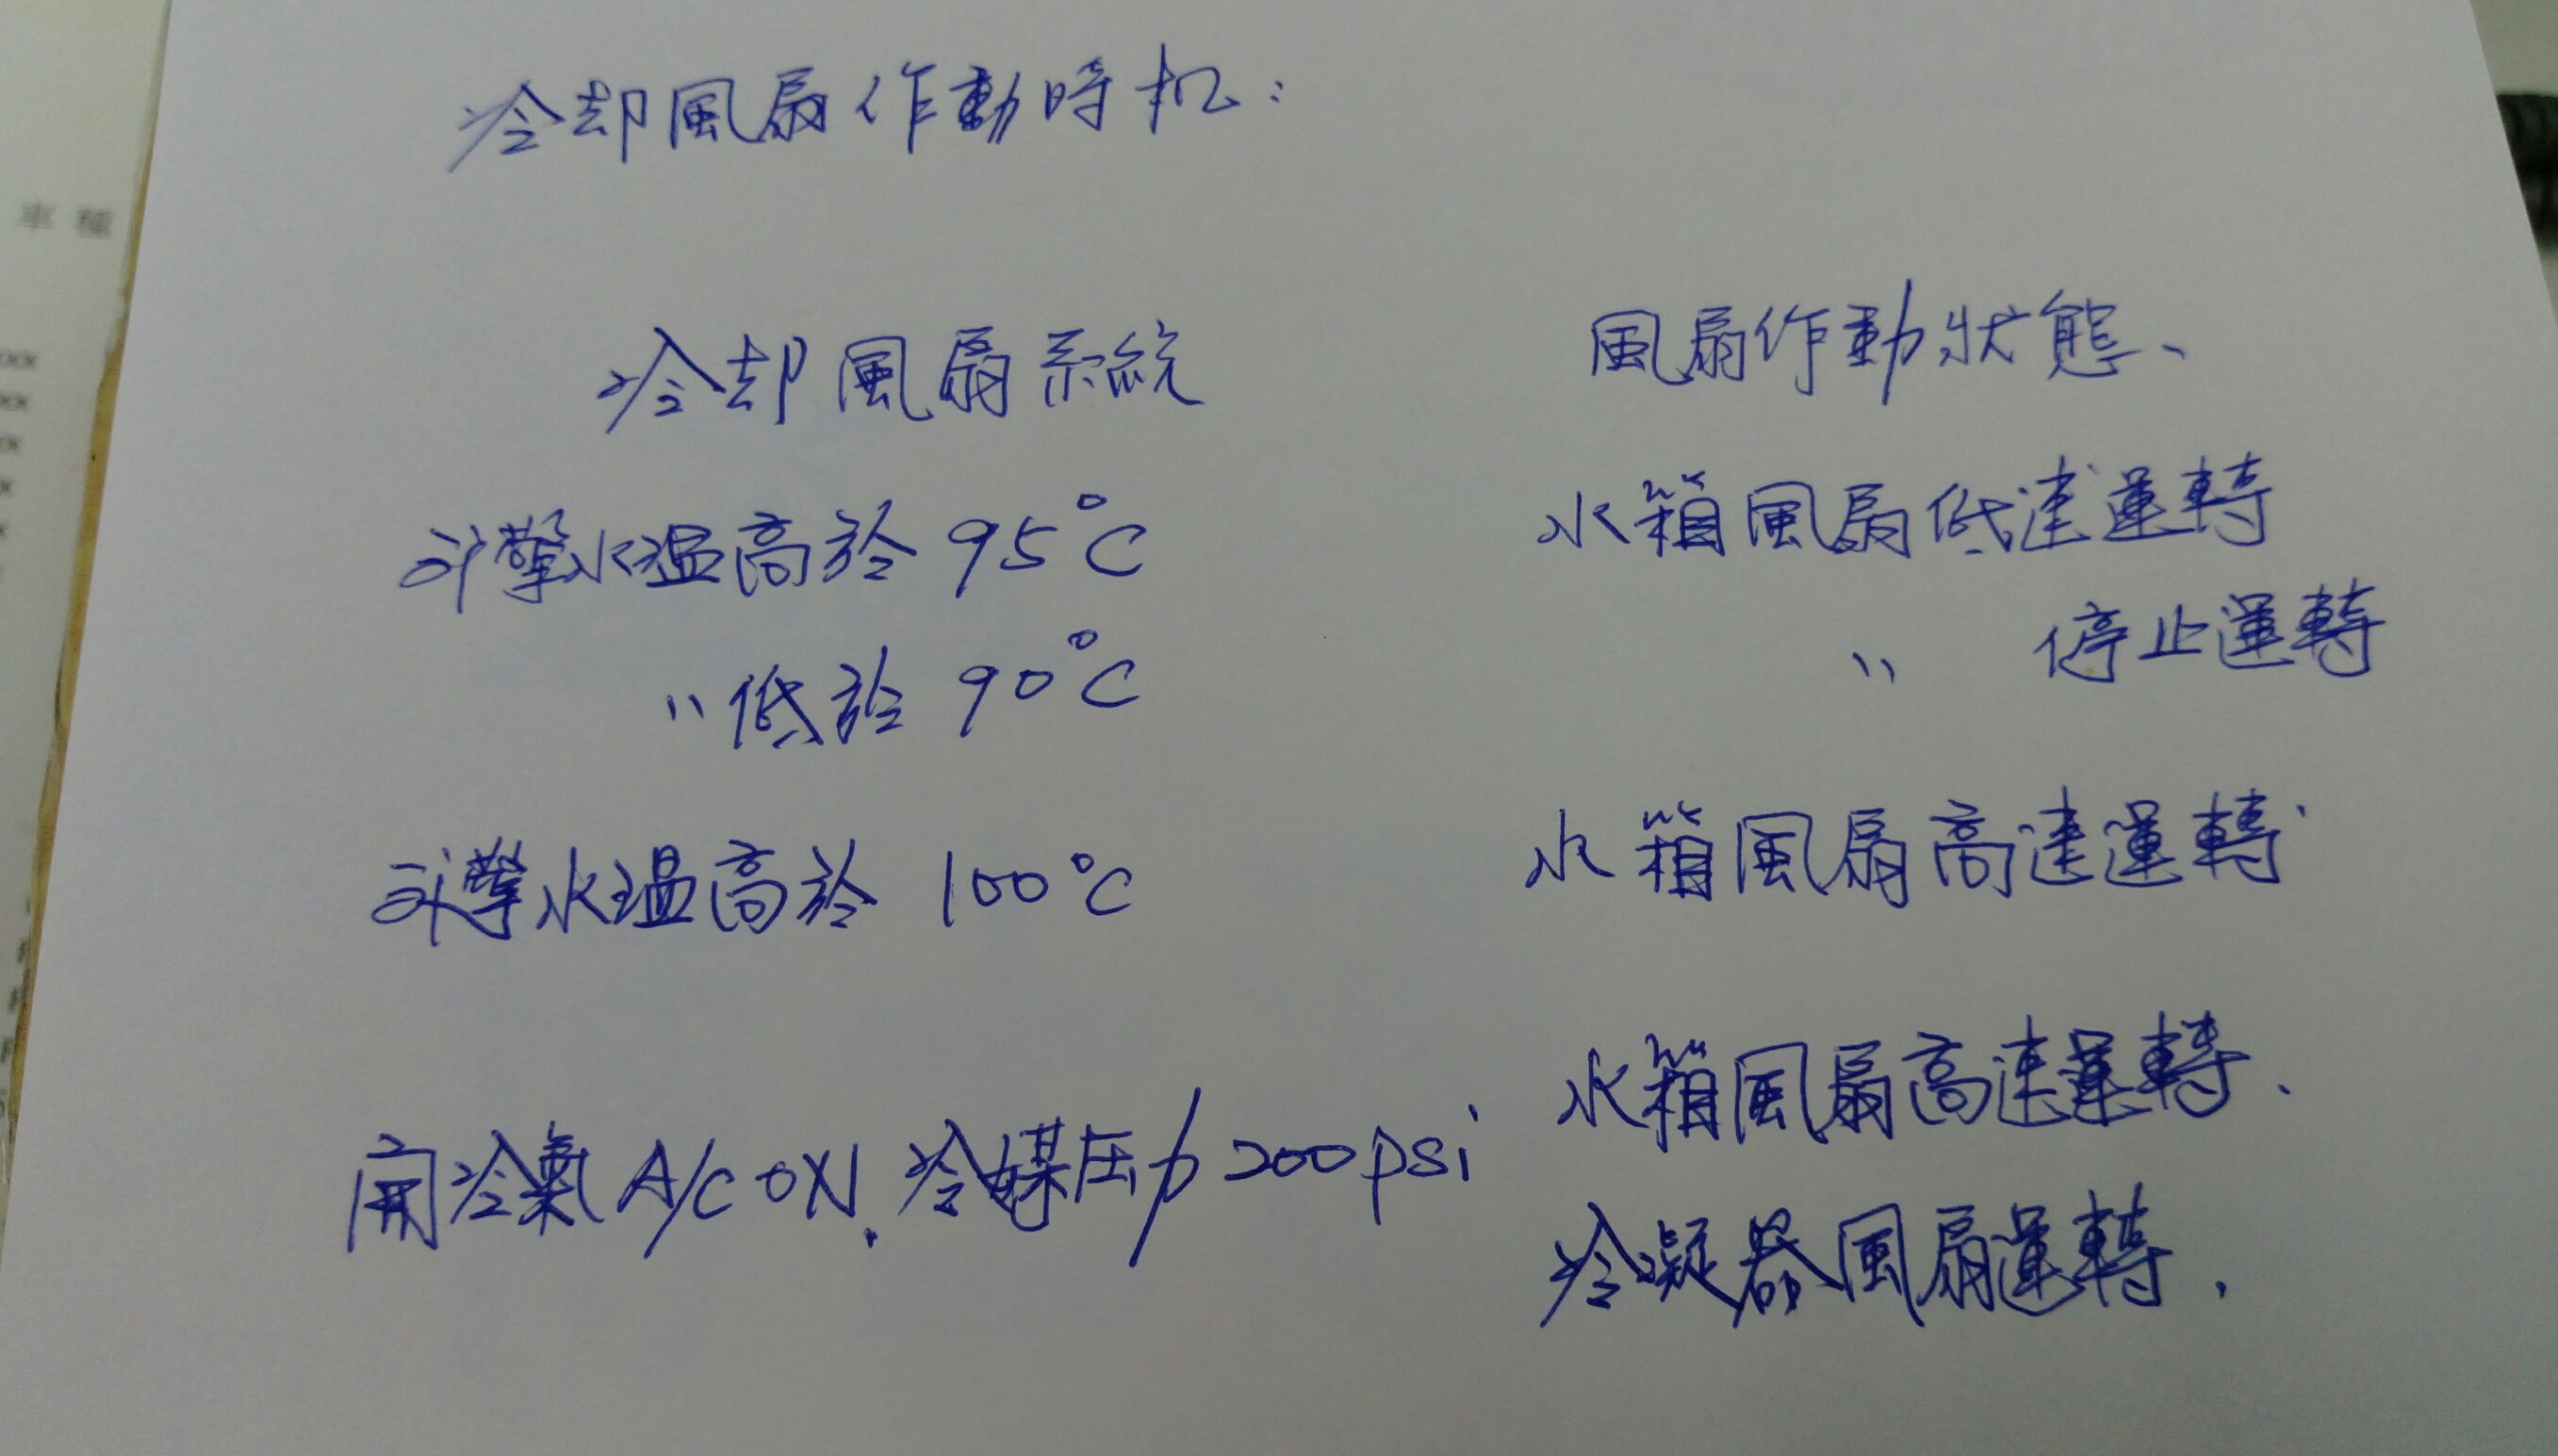 冷却風扇作動時机:
冷却風扇系統
風扇作動狀態、
引擎水温高於 95°C
水箱風扇低速運轉
〃低於 90°C
〃 停止運轉
引擎水温高於 100°C
水箱風扇高速運轉
開冷氣 A/C ON. 冷媒压力 200psi
水箱風扇高速運轉、
冷凝器風扇運轉.
車種